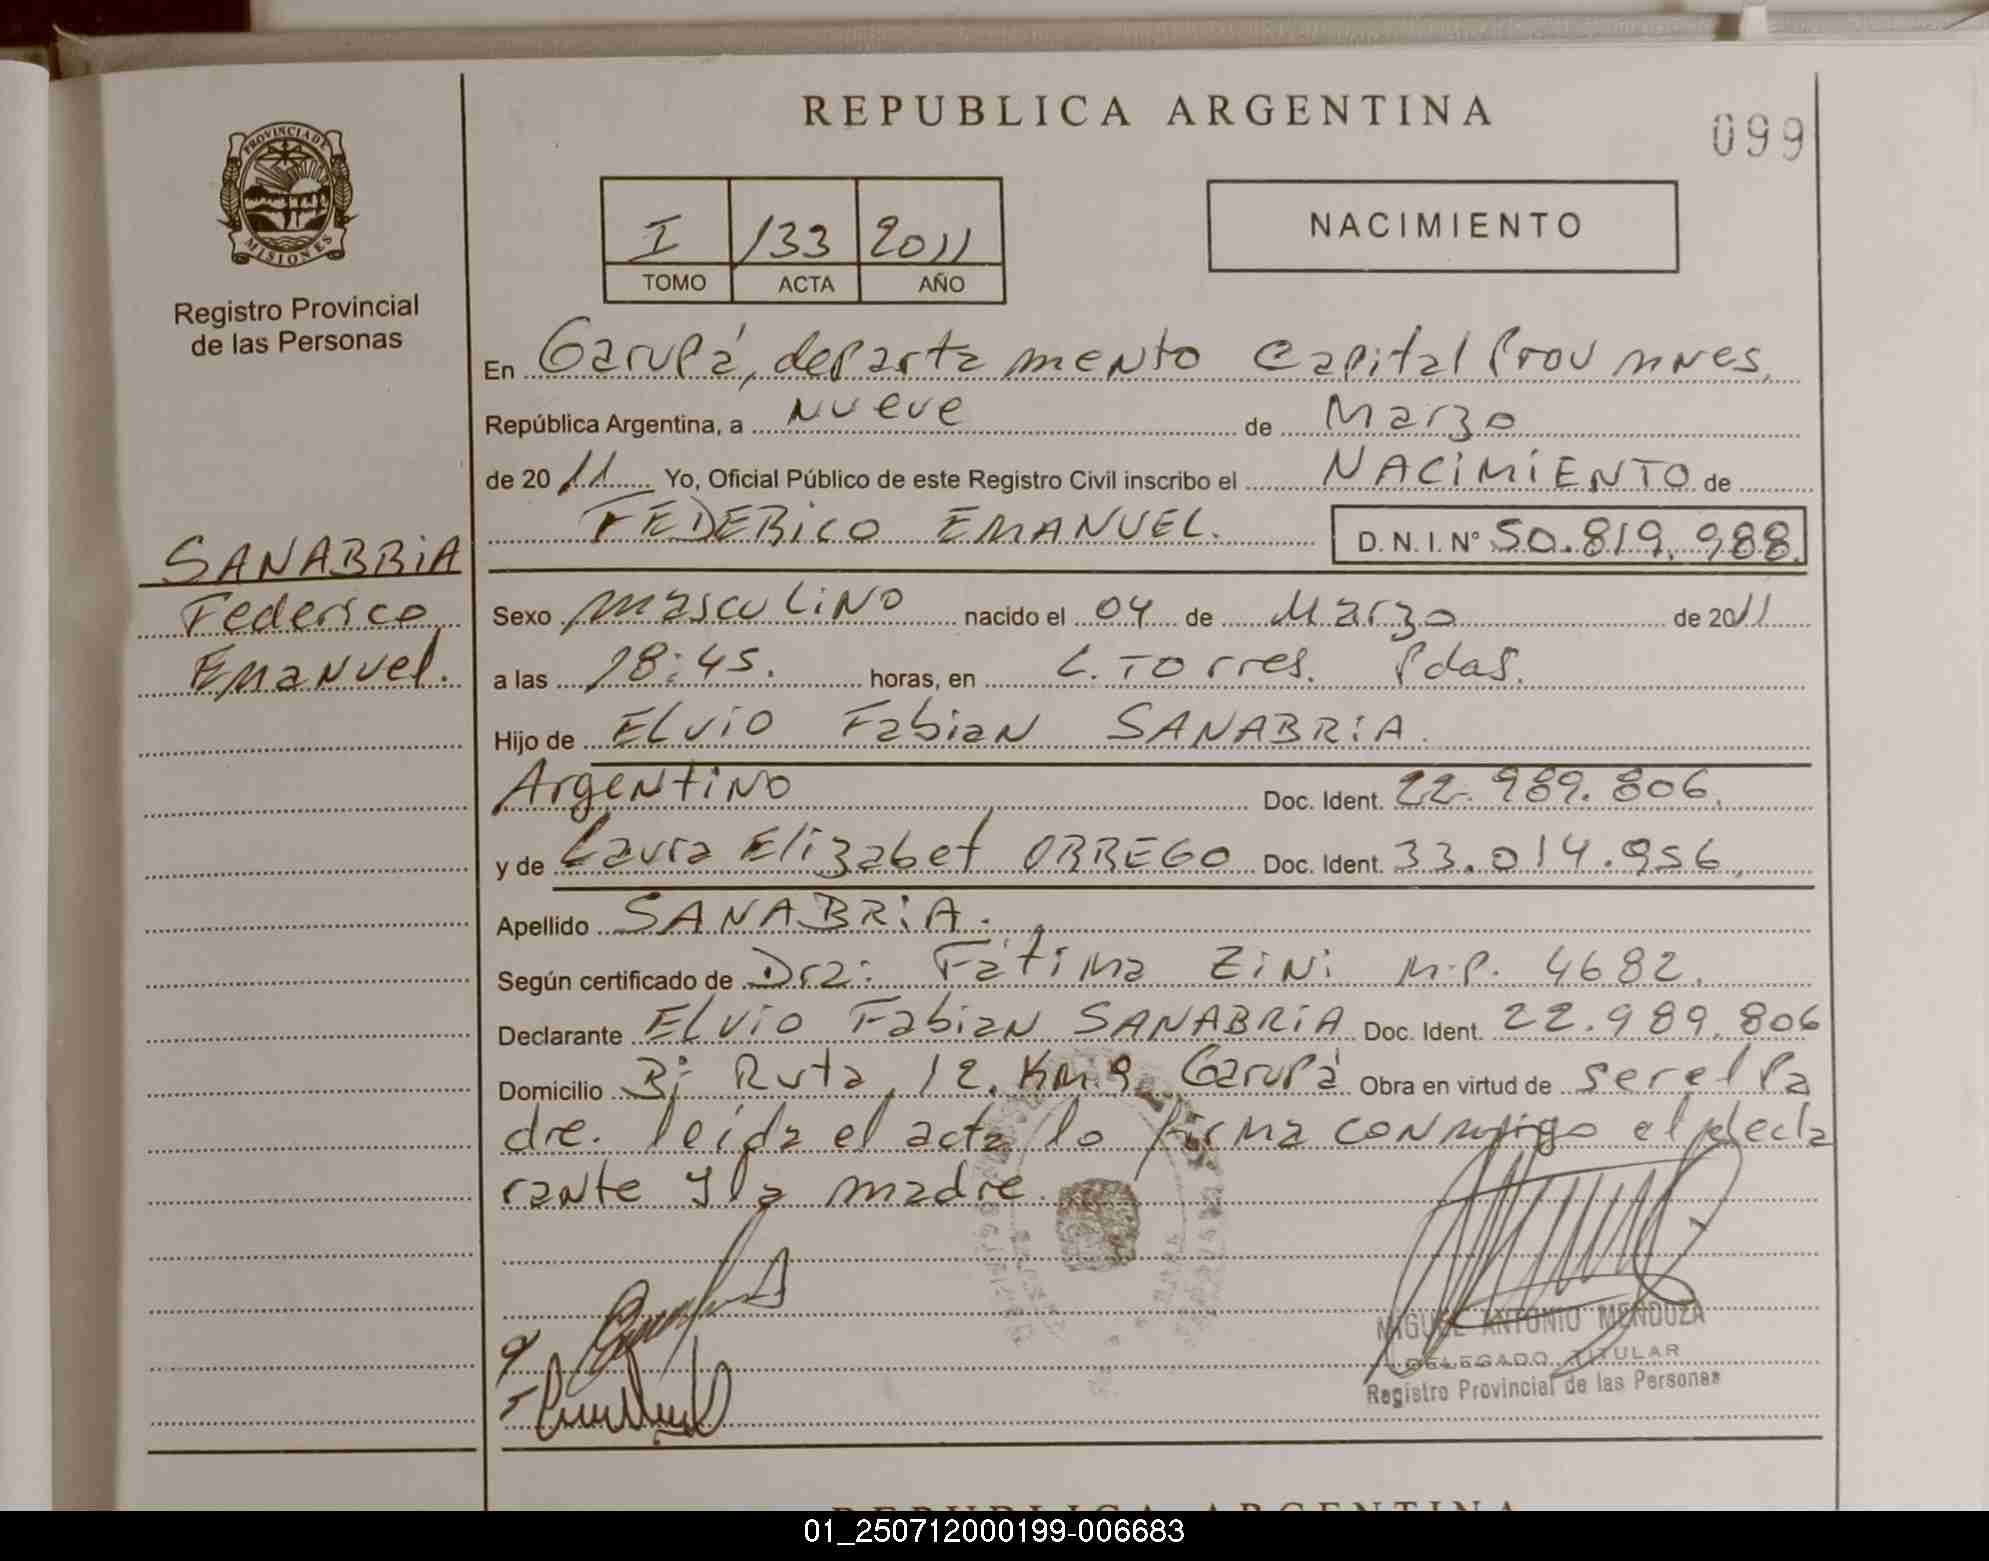 REPUBLICA ARGENTINA
099
PROVINCIA DE
MISIONES
Registro Provincial
de las Personas
I /133 2011
TOMO ACTA AÑO
NACIMIENTO
En Garupá, departamento Capital Prov mnes,
República Argentina, a nueve de Marzo
de 20 11 Yo, Oficial Público de este Registro Civil inscribo el NACIMIENTO de
FEDERICO EMANUEL. D.N.I. N° 50.819.988.
SANABRIA
Federico
Emanuel.
Sexo masculino nacido el 04 de Marzo de 2011
a las 18:45. horas, en L. Torres. Pdas.
Hijo de Elvio Fabian SANABRIA.
Argentino Doc. Ident. 22.989.806.
y de Laura Elizabet ORREGO Doc. Ident. 33.014.956,
Apellido SANABRIA.
Según certificado de Dra: Fátima Zini M.P. 4682.
Declarante Elvio Fabian SANABRIA Doc. Ident. 22.989.806
Domicilio Bº Ruta 12. Km 9. Garupá Obra en virtud de ser el Pa
dre. leida el acta lo firma conmigo el decla
rante y la madre.
MIGUEL ANTONIO MENDOZA
DELEGADO TITULAR
Registro Provincial de las Personas
REPUBLICA ARGENTINA
01_250712000199-006683